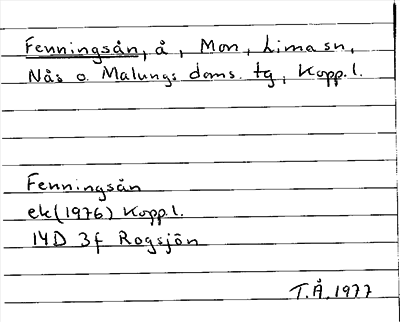 Fenningsån, å, Mon, Lima sn,
Nås o. Malungs doms. tg, Kopp. l.
Fenningsån
ek (1976) Kopp. l.
14D 3f Rogsjön
T.Å, 1977